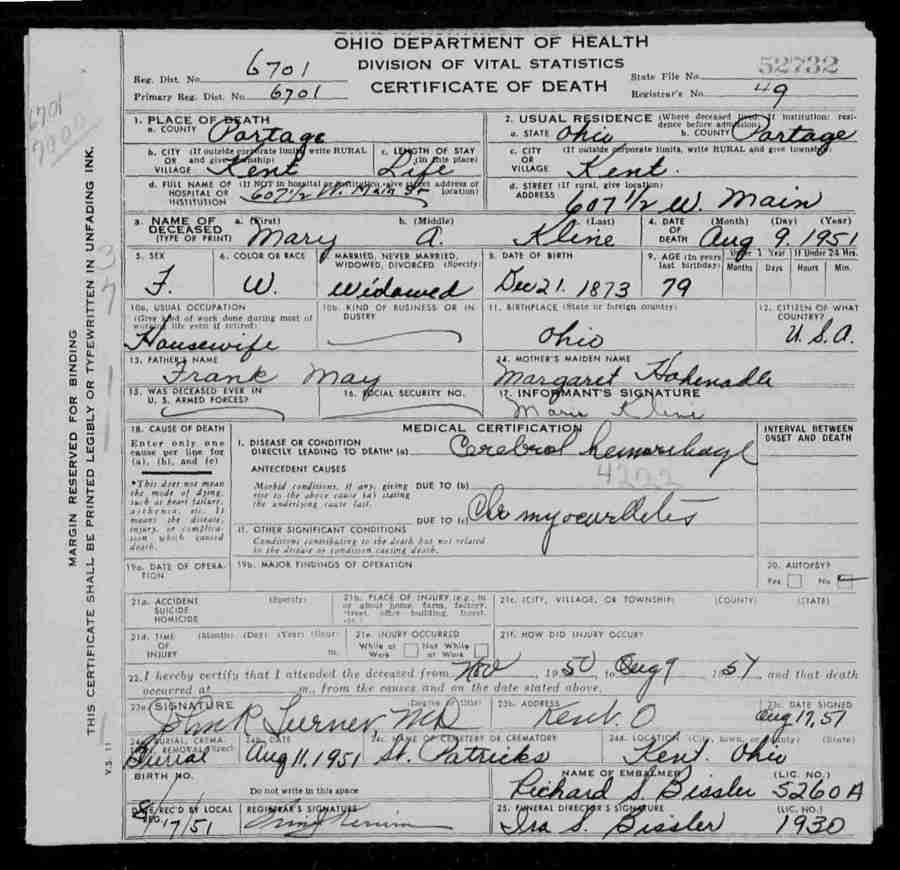 OHIO DEPARTMENT OF HEALTH
DIVISION OF VITAL STATISTICS
CERTIFICATE OF DEATH
Reg. Dist. No. 6701
Primary Reg. Dist. No. 6701
State File No. 52732
Registrar's No. 49
6701
1. PLACE OF DEATH
a. COUNTY Portage
2. USUAL RESIDENCE (Where deceased lived. If institution: residence before admission)
a. STATE Ohio b. COUNTY Portage
b. CITY OR VILLAGE (If outside corporate limits, write RURAL and give township) Kent
c. LENGTH OF STAY (in this place) Life
c. CITY OR VILLAGE (If outside corporate limits, write RURAL and give township) Kent.
d. FULL NAME OF HOSPITAL OR INSTITUTION (If NOT in hospital or institution, give street address or location) 607 1/2 W. Main St
d. STREET ADDRESS (If rural, give location) 607 1/2 W. Main
3. NAME OF DECEASED (TYPE OR PRINT) a. (First) Mary b. (Middle) A. c. (Last) Kline
4. DATE OF DEATH (Month) (Day) (Year) Aug 9 1951
5. SEX F.
6. COLOR OR RACE W.
7. MARRIED, NEVER MARRIED, WIDOWED, DIVORCED (Specify) Widowed
8. DATE OF BIRTH Dec 21. 1873
9. AGE (In years last birthday) 79
Under 1 Year Months Days
If Under 24 Hrs. Hours Min.
10a. USUAL OCCUPATION (Give kind of work done during most of working life even if retired) Housewife
10b. KIND OF BUSINESS OR INDUSTRY
11. BIRTHPLACE (State or foreign country) Ohio
12. CITIZEN OF WHAT COUNTRY? U.S.A.
13. FATHER'S NAME Frank May
14. MOTHER'S MAIDEN NAME Margaret Hohenadle
15. WAS DECEASED EVER IN U. S. ARMED FORCES?
16. SOCIAL SECURITY NO.
17. INFORMANT'S SIGNATURE Marie Kline
18. CAUSE OF DEATH
Enter only one cause per line for (a), (b), and (c)
*This does not mean the mode of dying, such as heart failure, asthenia, etc. It means the disease, injury, or complication which caused death.
MEDICAL CERTIFICATION
I. DISEASE OR CONDITION DIRECTLY LEADING TO DEATH* (a) Cerebral hemorrhage
4222
ANTECEDENT CAUSES
Morbid conditions, if any, giving rise to the above cause (a) stating the underlying cause last.
DUE TO (b)
DUE TO (c) Chr myocarditis
II. OTHER SIGNIFICANT CONDITIONS
Conditions contributing to the death but not related to the disease or condition causing death.
INTERVAL BETWEEN ONSET AND DEATH
19a. DATE OF OPERATION
19b. MAJOR FINDINGS OF OPERATION
20. AUTOPSY?
Yes No
21a. ACCIDENT SUICIDE HOMICIDE (Specify)
21b. PLACE OF INJURY (e.g., in or about home, farm, factory, street, office building, forest, etc.)
21c. (CITY, VILLAGE, OR TOWNSHIP) (COUNTY) (STATE)
21d. TIME OF INJURY (Month) (Day) (Year) (Hour) m.
21e. INJURY OCCURRED While at Work Not While at Work
21f. HOW DID INJURY OCCUR?
22. I hereby certify that I attended the deceased from Nov, 1950, to Aug 9, 1951, and that death
occurred at m., from the causes and on the date stated above.
23a. SIGNATURE (Degree or title) John R Turner, MD
23b. ADDRESS Kent. O
23c. DATE SIGNED Aug 17, 51
24a. BURIAL, CREMATION, REMOVAL (Specify) Burial
24b. DATE Aug 11, 1951
24c. NAME OF CEMETERY OR CREMATORY St. Patricks
24d. LOCATION (City, town, or county) (State) Kent, Ohio
BIRTH NO.
Do not write in this space
NAME OF EMBALMER (LIC. NO.)
Richard S. Bissler 5260A
DATE REC'D BY LOCAL REG. 8/17/51
REGISTRAR'S SIGNATURE
25. FUNERAL DIRECTOR'S SIGNATURE (LIC. NO.)
Ira S. Bissler 1930
MARGIN RESERVED FOR BINDING
THIS CERTIFICATE SHALL BE PRINTED LEGIBLY OR TYPEWRITTEN IN UNFADING INK.
V.S. 11